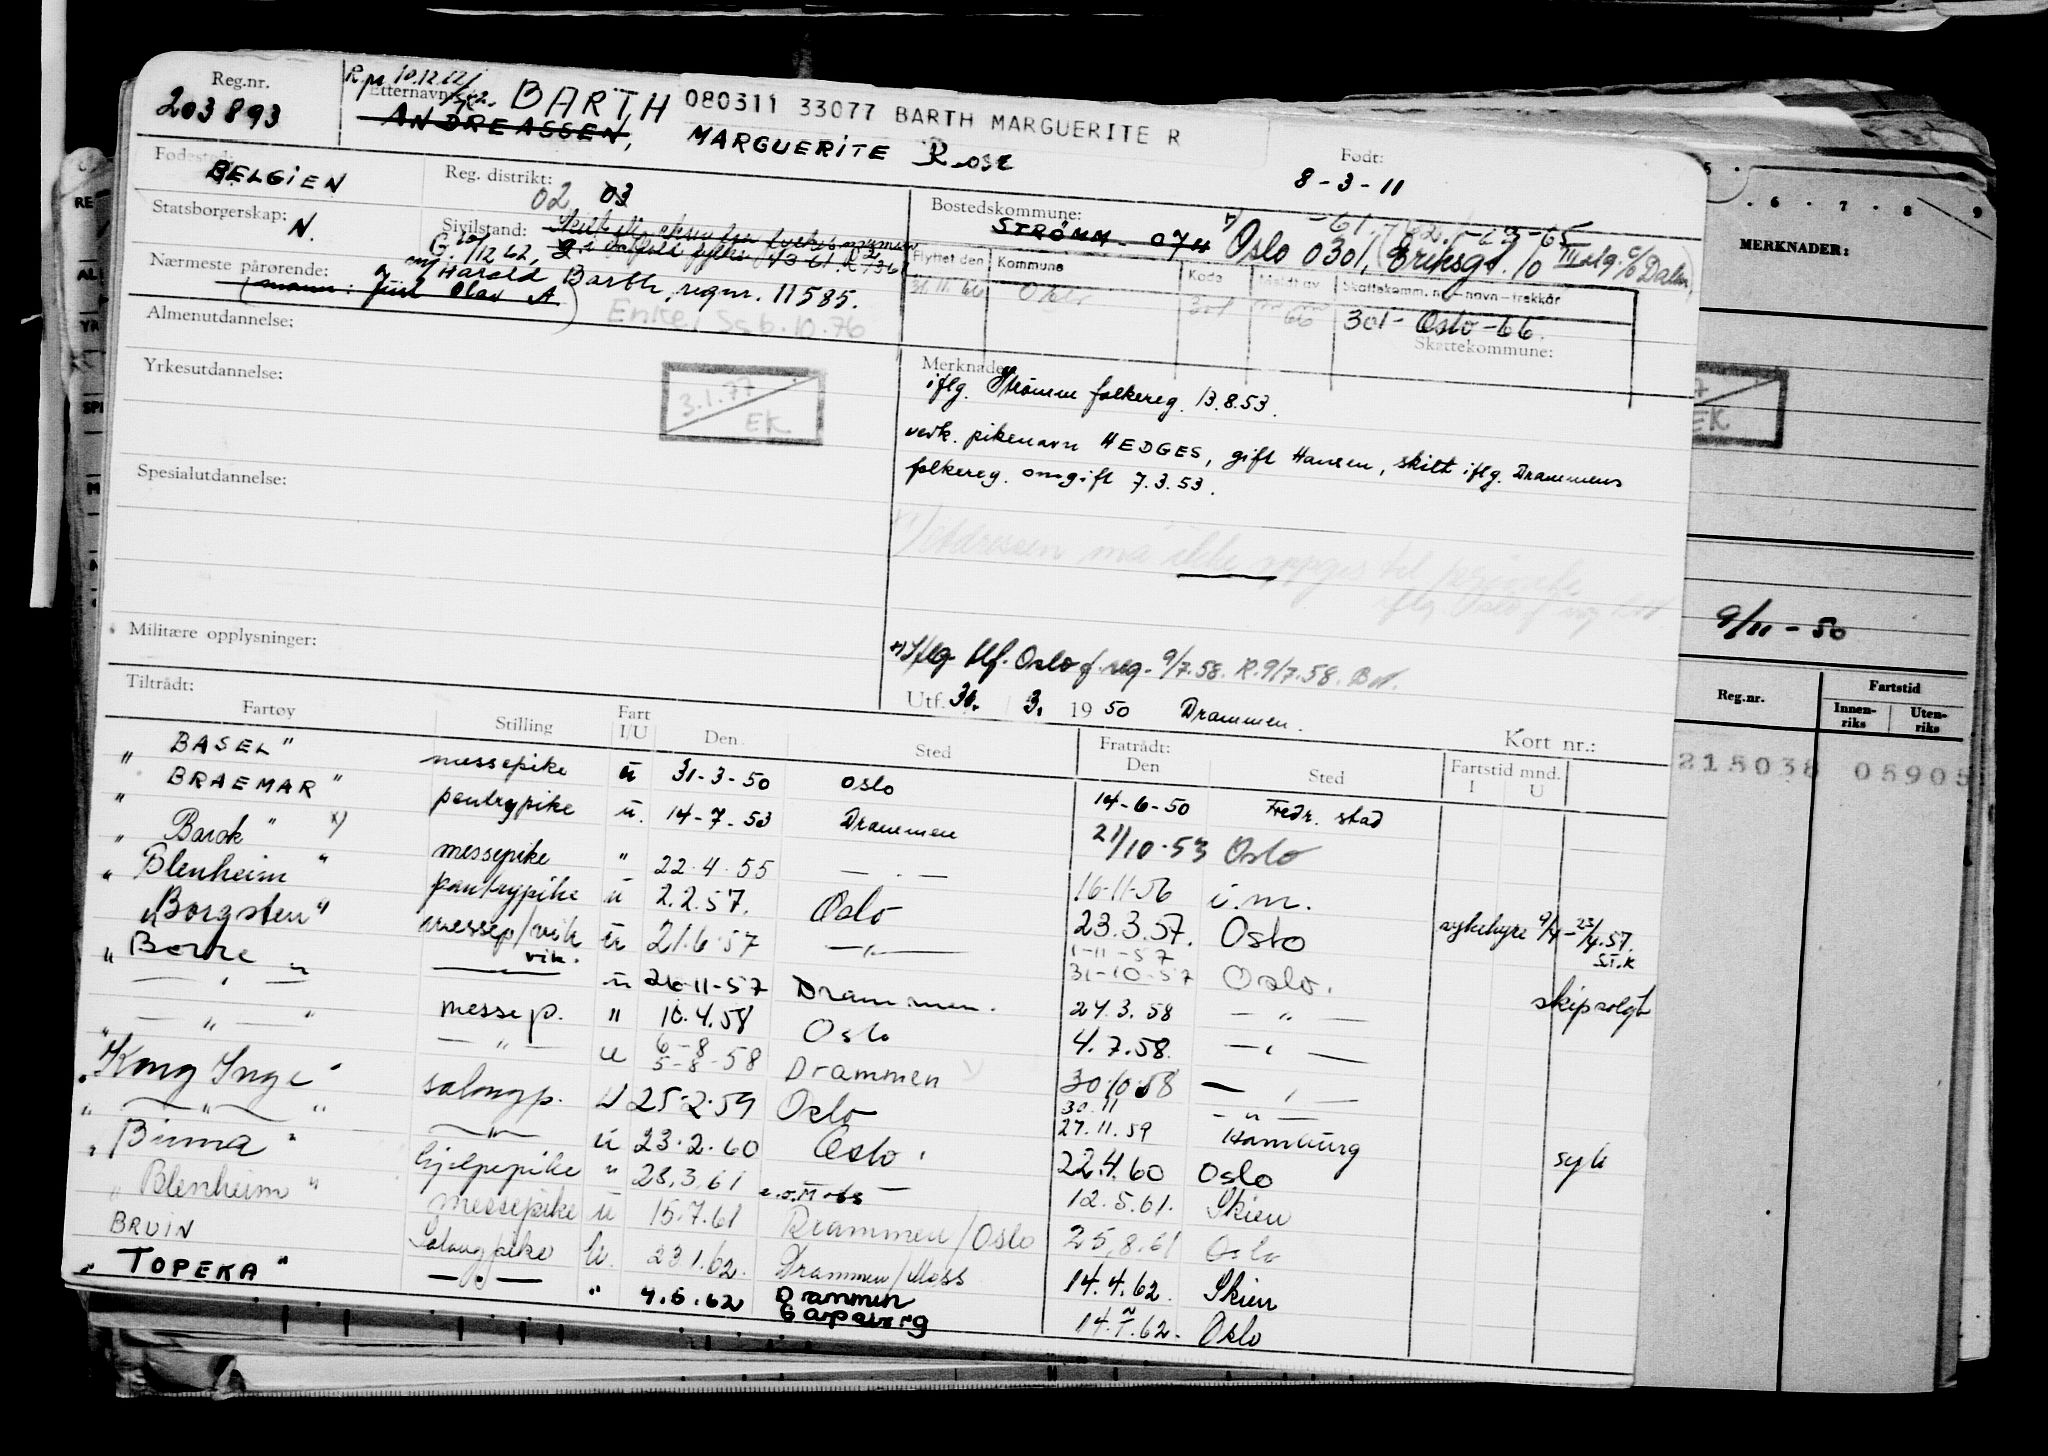 Reg.nr.
203893
Etternavn:
BARTH
080311 33077 BARTH MARGUERITE R
ANDREASSEN, MARGUERITE Rose
Født:
8-3-11
Fødested:
BELGIEN
Reg. distrikt:
02 03
Statsborgerskap:
N.
Sivilstand:
Bostedskommune:
STRÖMM - 0711 Oslo 0301, Eriksgt. 10
Flyttet den Kommune Kode Meldt av Skattekomm. nr.-navn-trekkår
Oslo 301 66 301 - Oslo - 66.
Skattekommune:
Nærmeste pårørende:
Harald Barth, regnr. 11585.
(mann: Juul Olav A)
Enke, 6.10.76
Almenutdannelse:
Yrkesutdannelse:
3.1.77
EK
Spesialutdannelse:
Militære opplysninger:
Merknader:
iflg. Strømm folkereg. 13.8.53.
vedk. pikenavn HEDGES, gift Hansen, skilt iflg. Drammens
folkereg. omgift 7.3.53.
Adressen må ikke oppgis til private
Iflg. tlf. Oslo f.reg. 9/7.58. R. 9/7.58.
Utf. 30. 3. 1950 Drammen.
Tiltrådt:
Fartøy Stilling Fart I/U Den Sted
Fratrådt: Den Sted
Kort nr.:
Fartstid mnd. I U
" BASEL " messepike u 31-3-50 Oslo 14-6-50 Fredr. stad
" BRAEMAR " pantrypike u. 14-7-53 Drammen 21/10-53 Oslo
" Barok " x) messepike " 22.4.55 — . — 16-11-56 i.m.
" Blenheim " pantrypike u 2.2.57. Oslo 23.3.57. Oslo sykehyre 9/4-23/4.57.
" Borgsten " messep/vik u 21.6.57 — " — 1-11-57 31-10-57 Oslo. skip solgt
" Borre " vik. u 26-11-57 Drammen. 24.3.58 — " —
— " — messep. " 10.4.58 Oslo 4.7.58. — " —
— " — — " — u 6-8 5-8-58 Drammen 30.10.58 — " —
" Kong Inge " salongp. u 25.2.59 Oslo 30.11 27.11.59 — " — Hamburg syk
— " — — " — u 23.2.60 Oslo 22.4.60 Oslo
" Binna " hjelpepike " 28.3.61 12.5.61. Skien
" Blenheim " messepike u 15.7.61 Drammen/Oslo 25.8.61 Oslo
BRUIN Salongpike U. 23.1.62. Drammen/Moss 14.4.62. Skien
" TOPEKA " — " — " 4.6.62 Drammen Sarpsborg 14.7.62. Oslo
5 . 6 . 7 . 8 9
MERKNADER:
EK
9/11-50
Reg.nr.
Fartstid
Innenriks Utenriks
215038 05905